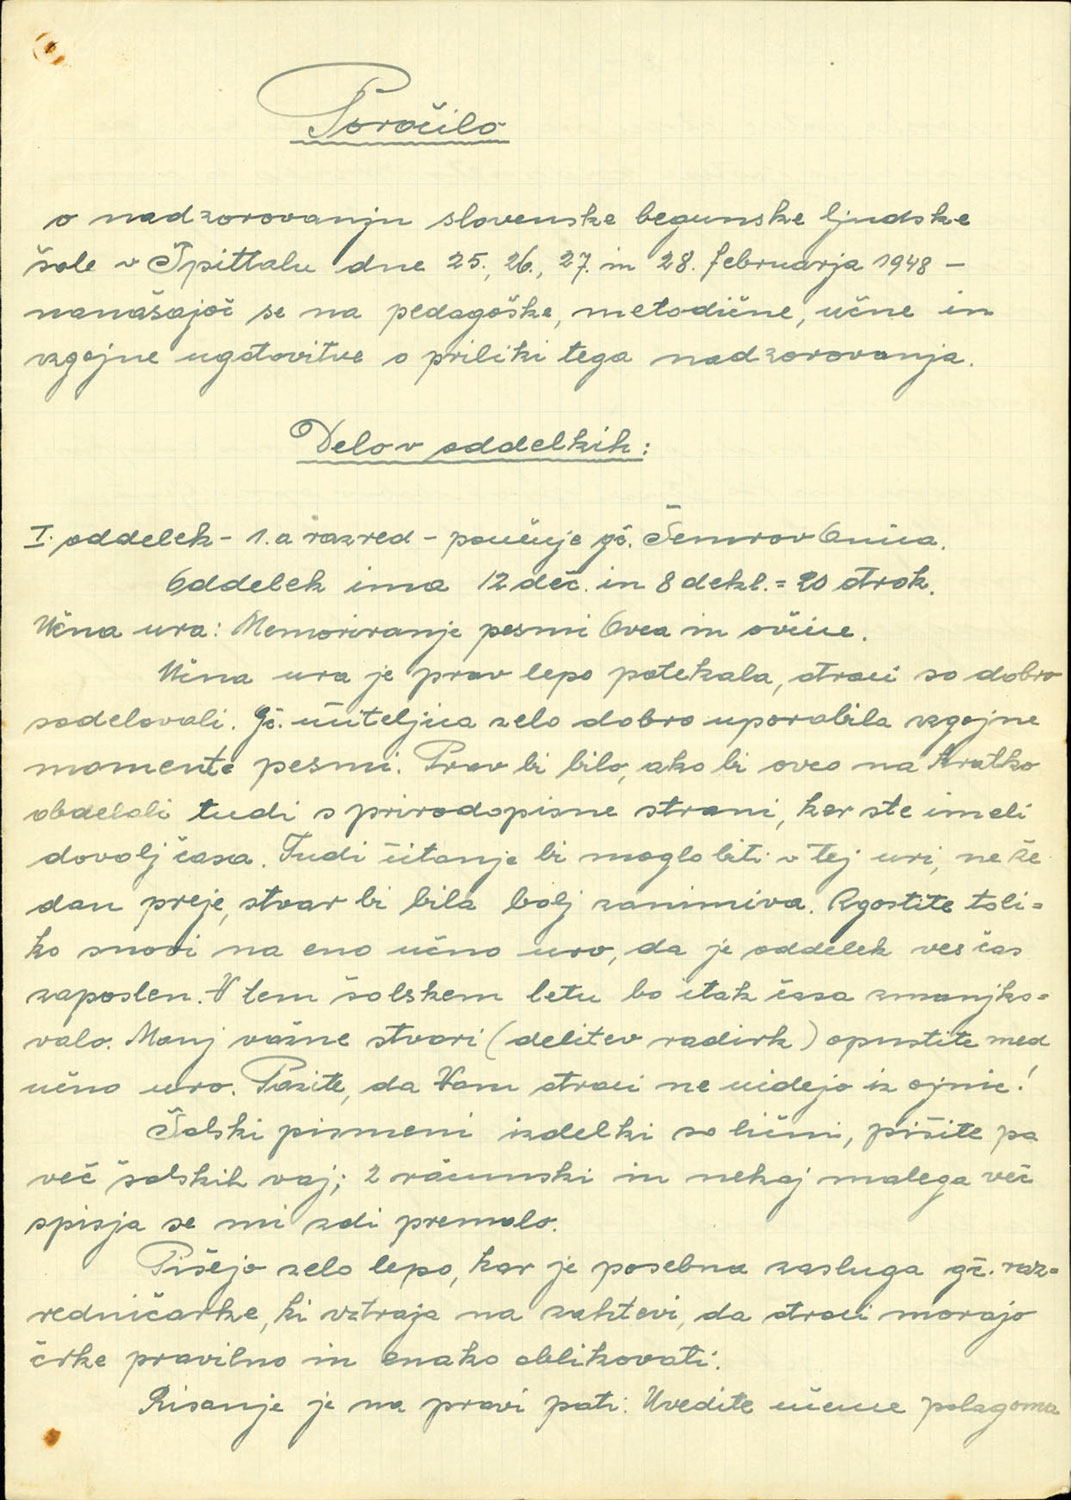 Poročilo
o nadzorovanju slovenske begunske ljudske
šole v Špittalu dne 25., 26., 27. in 28. februarja 1948 –
nanašajoč se na pedagoške, metodične, učne in
vzgojne ugotovitve o priliki tega nadzorovanja.
Delo v oddelkih:
I. oddelek – 1. a razred – poučuje gč. Šemrov Anica.
Oddelek ima 12 deč. in 8 dekl. = 20 otrok.
Učna ura: Memoriranje pesmi Ovca in ovčice.
Učna ura je prav lepo potekala, otroci so dobro
sodelovali. Gč. učiteljica zelo dobro uporabila vzgojne
momente pesmi. Prav bi bilo, ako bi ovco na kratko
obdelali tudi s prirodopisne strani, ker ste imeli
dovolj časa. Tudi čitanje bi moglo biti v tej uri, ne že
dan preje, stvar bi bila bolj zanimiva. Zgostite toli=
ko snovi na eno učno uro, da je oddelek ves čas
zaposlen. V tem šolskem letu bo itak časa zmanjko=
valo. Manj važne stvari (delitev radirk) opustite med
učno uro. Pazite, da Vam otroci ne uidejo iz ojnic!
Šolski pismeni izdelki so lični, pišite pa
več šolskih vaj; 2 računski in nekaj malega več
spisja se mi zdi premalo.
Pišejo zelo lepo, kar je posebna zasluga gč. raz=
redničarke, ki vztraja na zahtevi, da otroci morajo
črke pravilno in enako oblikovati.
Risanje je na pravi poti. Uvedite učence polagoma